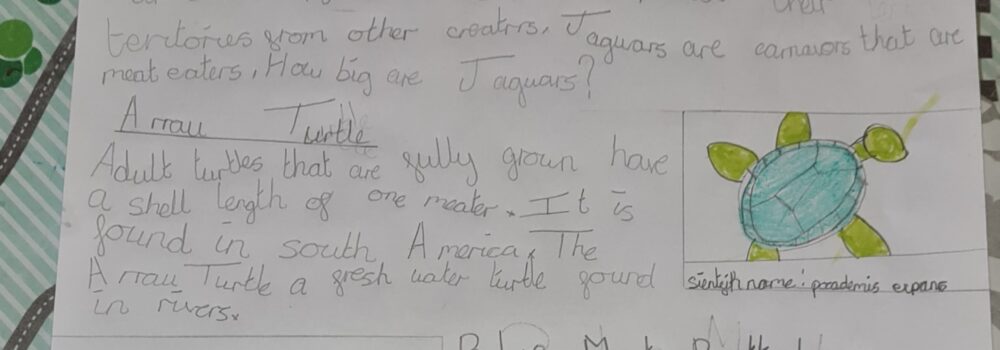 their
territories from other creatrs. Jaguars are carnavors that are
meat eaters. How big are Jaguars?
Arrau Turtle
Adult turtles that are fully groun have
a shell length of one meater. It is
found in south America. The
Arrau Turtle a fresh water turtle found
in rivers.
name: